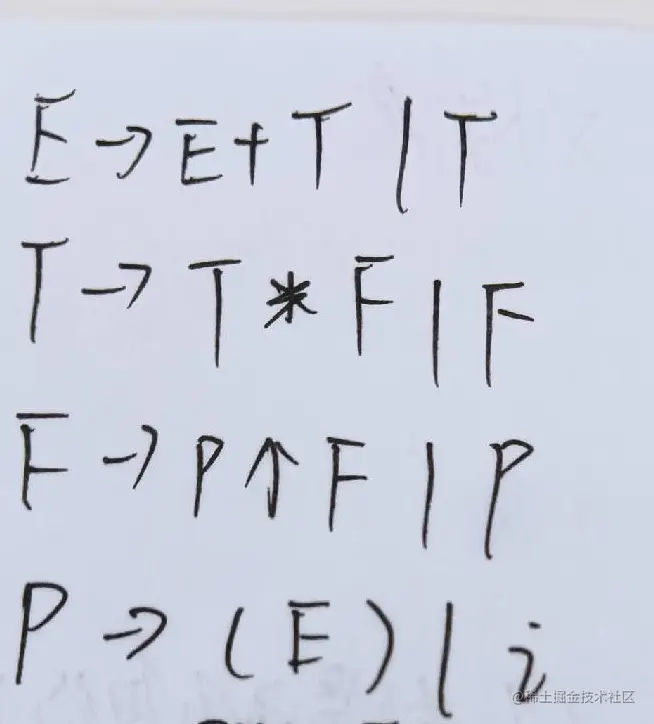 E → E + T | T
T → T * F | F
F → P ↑ F | P
P → ( E ) | i
@稀土掘金技术社区